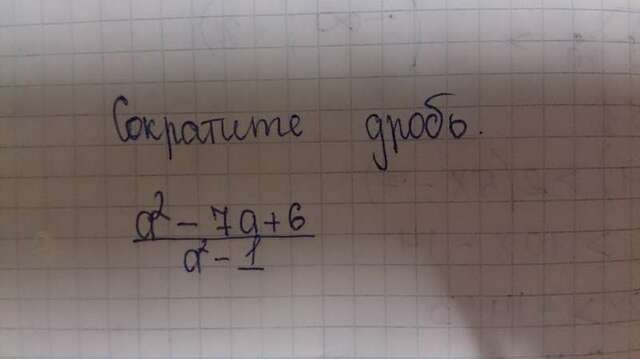 Сократите дробь.
a² - 7a + 6
a² - 1